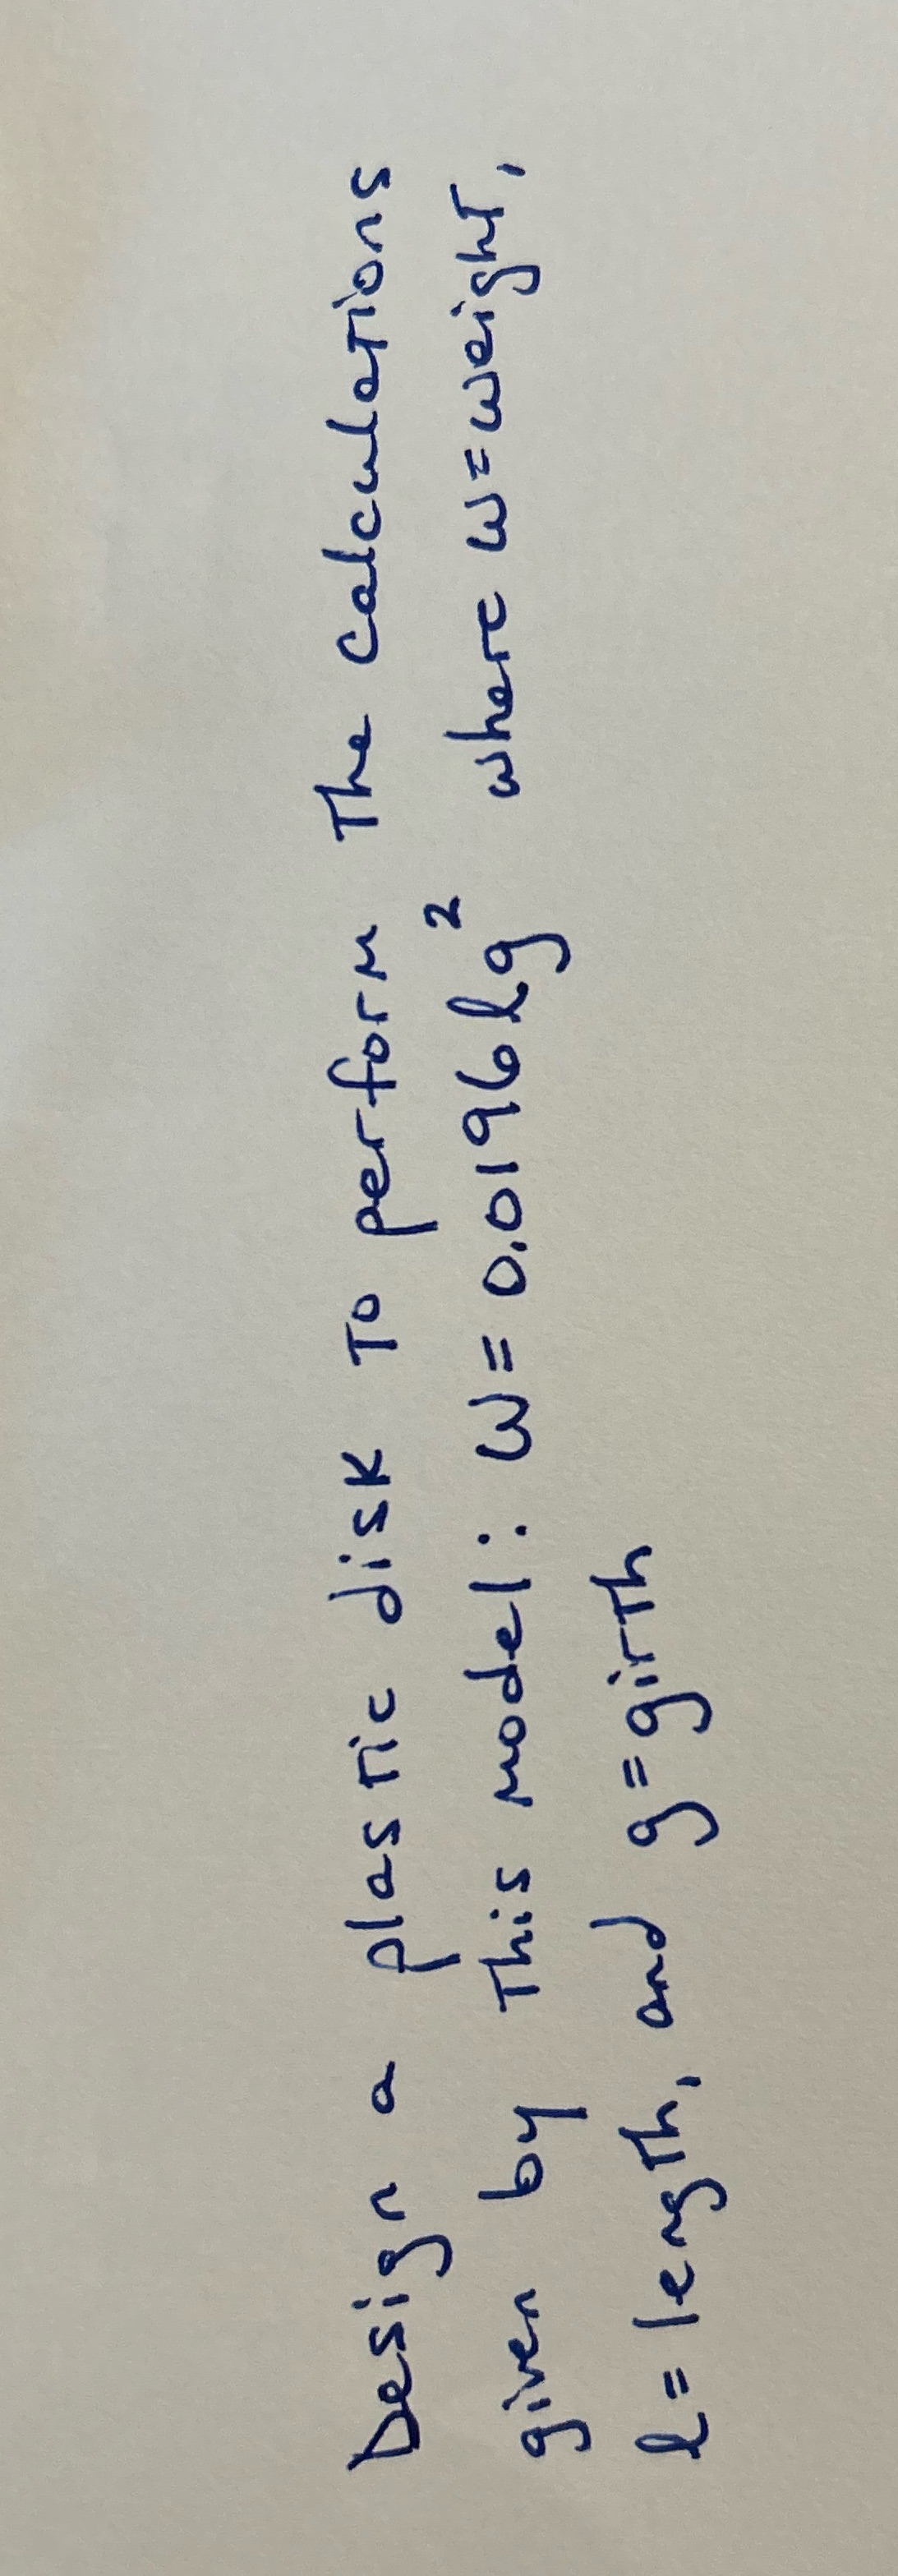 Design a plastic disk to perform the calculations
given by this model: W = 0.0196 l g² where W = weight,
l = length, and g = girth